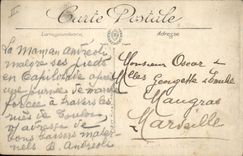 Carte Postale
Correspondance
Adresse
La Maman Andréoli
malgré ses pieds
en Capilotade après
une journée de marche
forcée à travers les
rues de Toulon
vs adresse de
bons baisers mater-
nels B. Andréoli
Monsieur Oscar &
Melles Georgette &
Maugras
Marseille